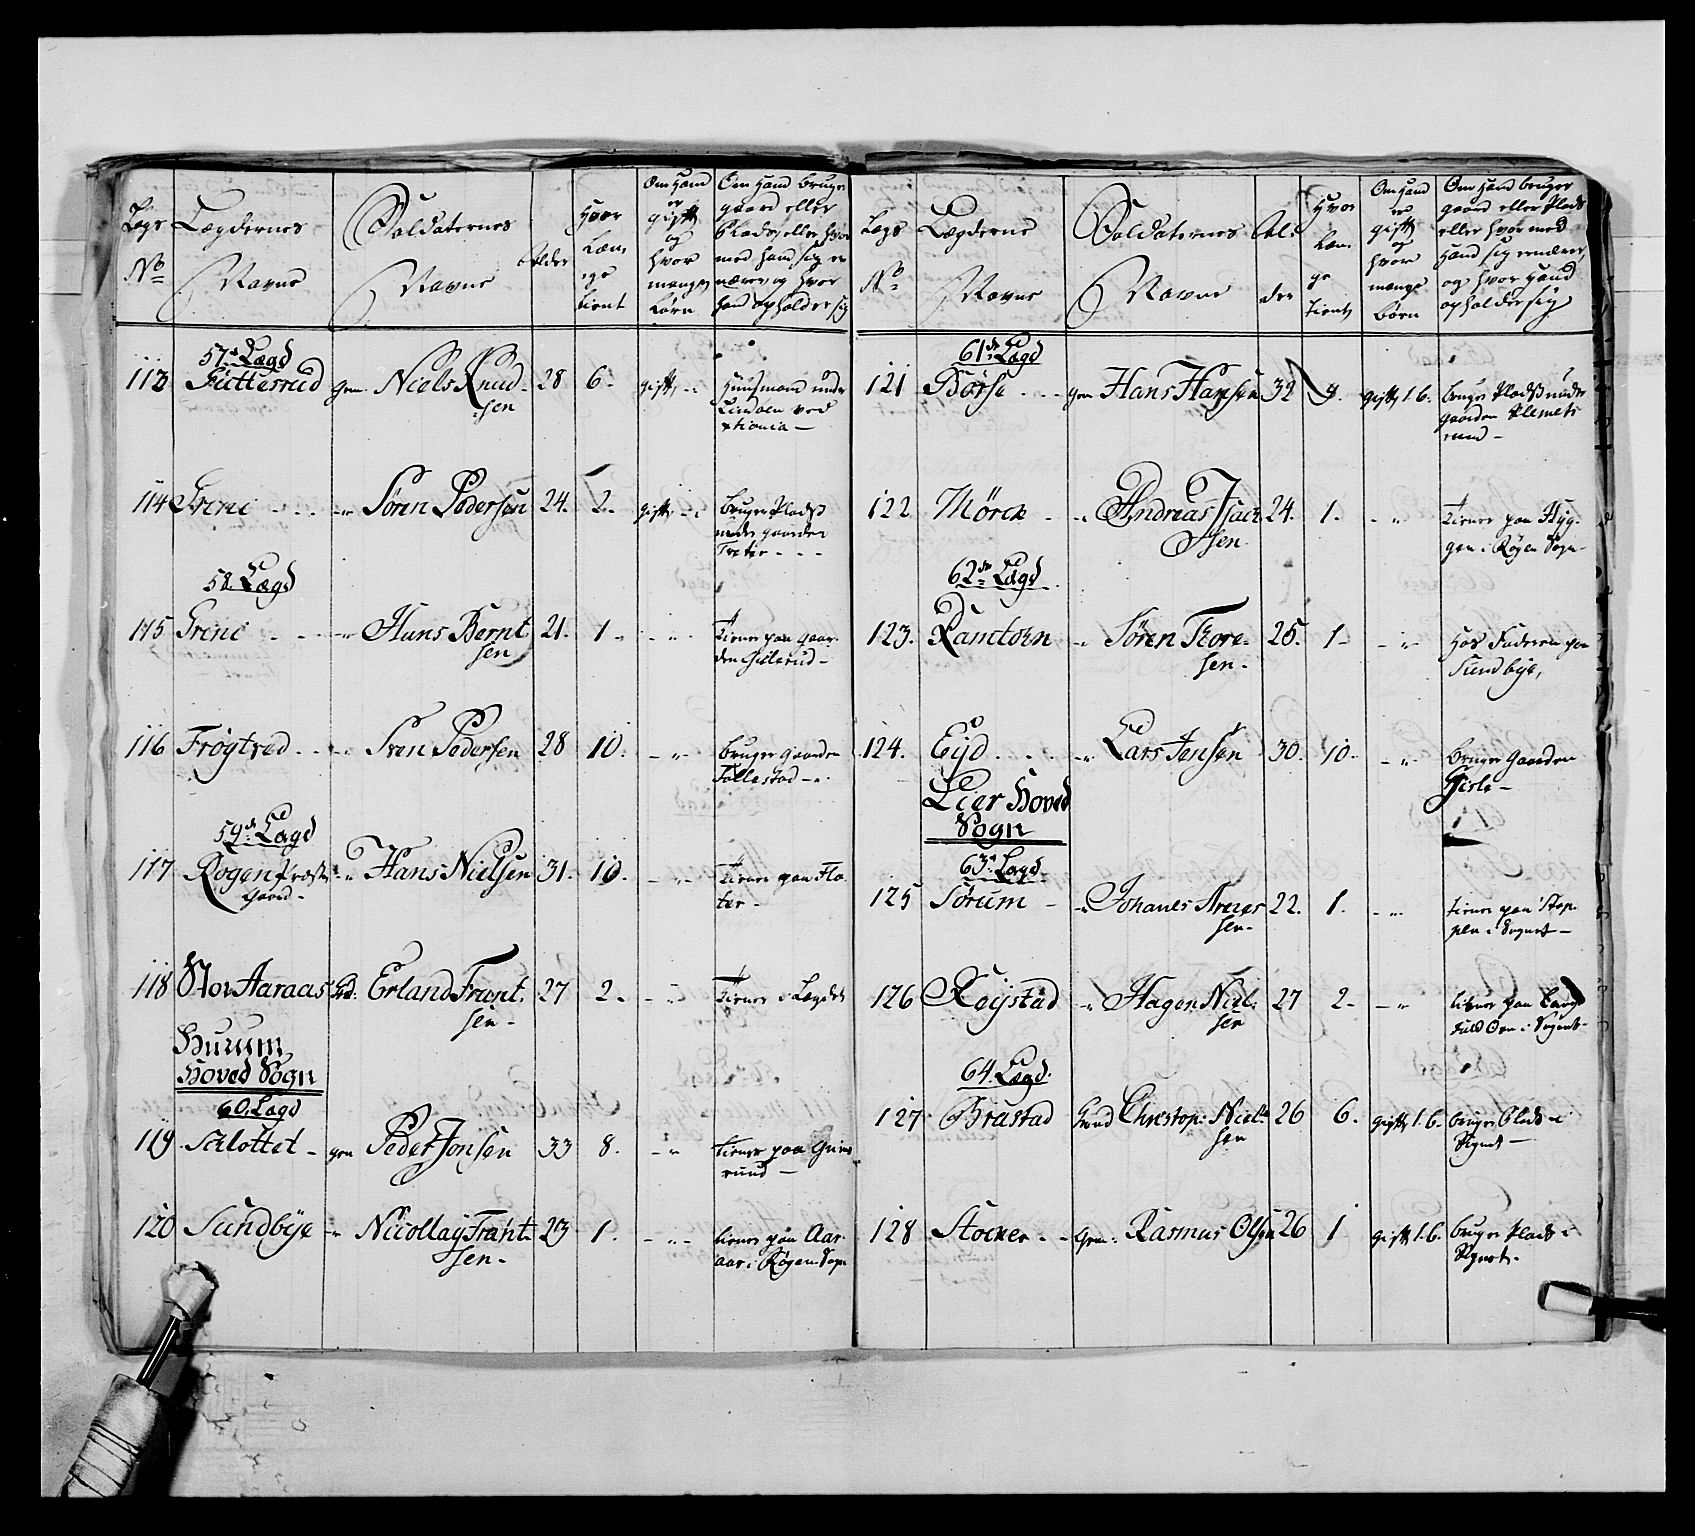 Lægs
No
Lægdernes
Navne
Soldaternes
Navne
Alder
Hvor
Læn,
ge
tient
Om Hand
er
gift
og
Hvor
mange
Børn
Om Hand bruger
gaard eller
Plads, eller Hvor
med Hand sig er
nærer, og Hvor
Hand opholder sig
57de Lægd
113 gem. Niels Knud- 28 6. gift
sen
Huusmand under
ved
114 Greni - - - " Søren Pedersen 24. 2. gift
bruger Plads
under gaarden
58. Lægd
115 Greni - - - " Hans Bernt 21. 1. - "
sen
tiener paa gaar-
den
116 Frøgtved - - " Sven Pedersen 28 10. - "
bruger gaarden
Follestad
59de Lægd
117 Røgen Præste " Hans Nielsen 31. 10. - "
Gaard.
tiener paa Flo-
ter
118 Stor Aaraas Erland Frant- 27 2. - "
sen.
tiener i Lægdet
Hurum
Hoved Sogn
60. Lægd
119 Sclottet - gem Peder Jonsen 33 8. - "
tiener paa Grims
ruud
120 Sundbye " Nicollay Frant- 23 1. - "
sen.
tiener paa Aar-
aas i Røgen Sogn
Lægs
No
Lægderne
Navne
Soldaternes
Navne
Al-
der
Hvor
Læn-
ge
tient
Om Hand
er
gift
og
Hvor
mange
Børn
Om Hand bruger
gaard eller Plads
eller Hvor med
Hand sig ernærer,
og Hvor Hand
opholder sig
61de Lægd
121 Børse - - gem Hans Hansen 32 9. gift 1.b.
bruger Plads under
gaarden Klemets
ruud
122 Mørck - " Andreas Isach 24. 1. - "
sen.
tiener paa Hyg-
gen i Røgen Sogn
62de Lægd
123. Ramton " Søren Tore- 25. 1. - "
sen.
Hos Faderen paa
Sundbye,
124. Eyd. - - " Lars Jensen 30. 10. - "
bruger gaarden
Gisle
Lier Hoved
Sogn
63de Lægd
125 Sørum - " Johanes Arnes 22. 1. - "
sen.
tiener paa Stop-
pen i Sognet
126 Reystad " Hagen Niel- 27 2. - "
sen
tiener paa
i Sognet
64. Lægd
127 Brastad Christop: Niel- 26 6. gift 1.b.
sen
bruger Plads i
Sognet
128 Stocker - - gem: Rasmus Olsen 26 1 gift 1.b.
bruger Plads i
Sognet.